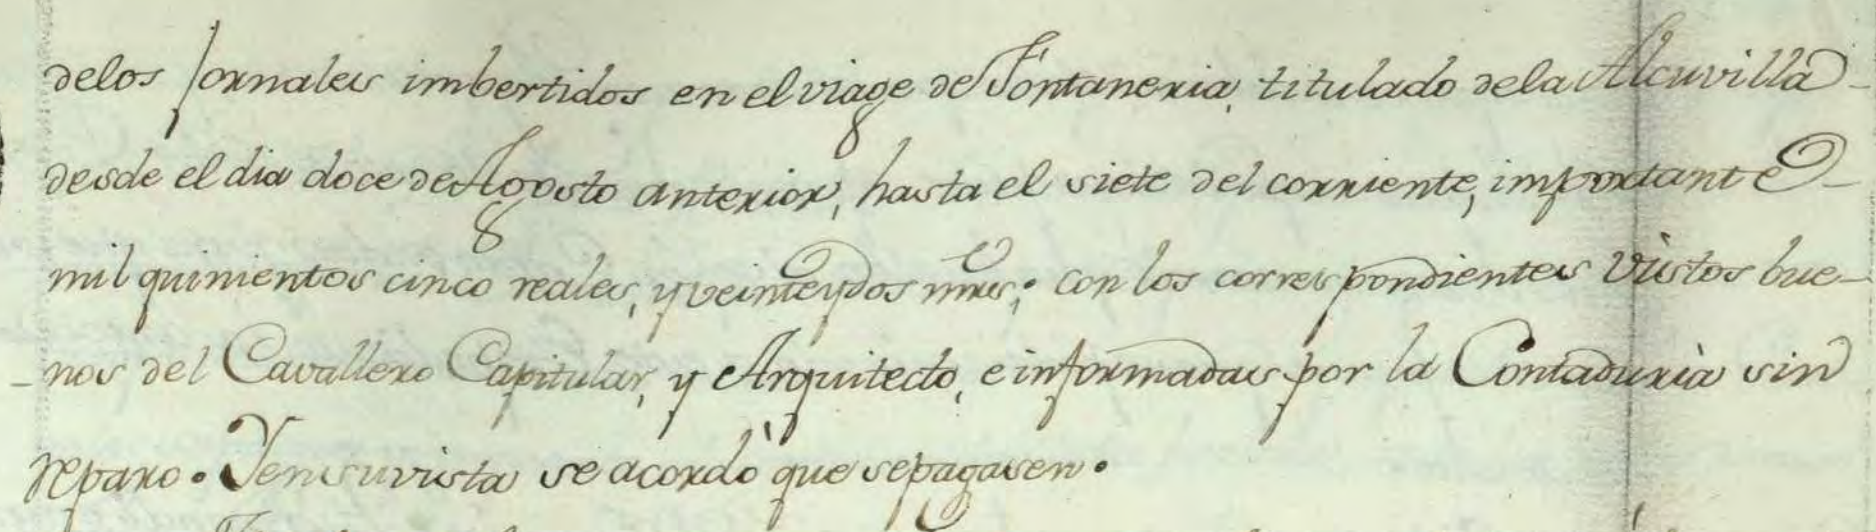 delos Jornales imbertidos en el viage de Fontaneria, titulado dela Alcuvilla
desde el dia doce de Agosto anterior, hasta el siete del corriente, importante
mil quinientos cinco reales, y veinteydos mrs; con los correspondientes Vistos bue-
nos del Cavallero Capitular, y Arquitecto, e informadas por la Contaduria sin
reparo. Yensuvista se acordò que sepagasen.